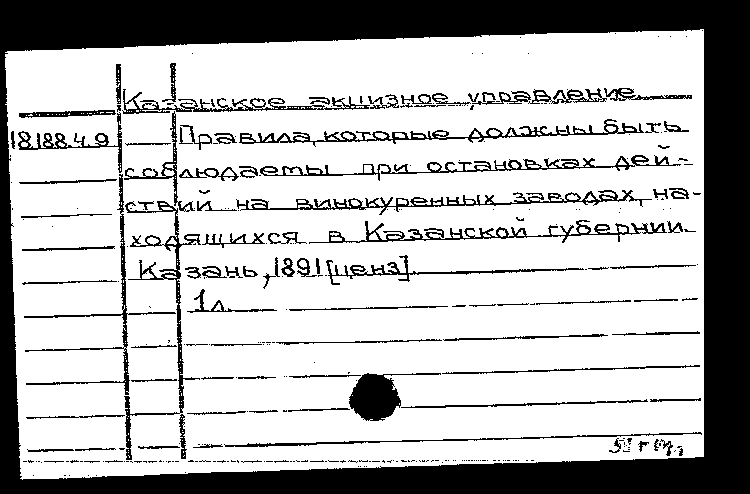 Казанское акцизное управление.
18.188.4.9 Правила, которые должны быть
соблюдаемы при остановках дей-
ствий на винокуренных заводах, на-
ходящихся в Казанской губернии.
Казань, 1891 [ценз].
1 л.